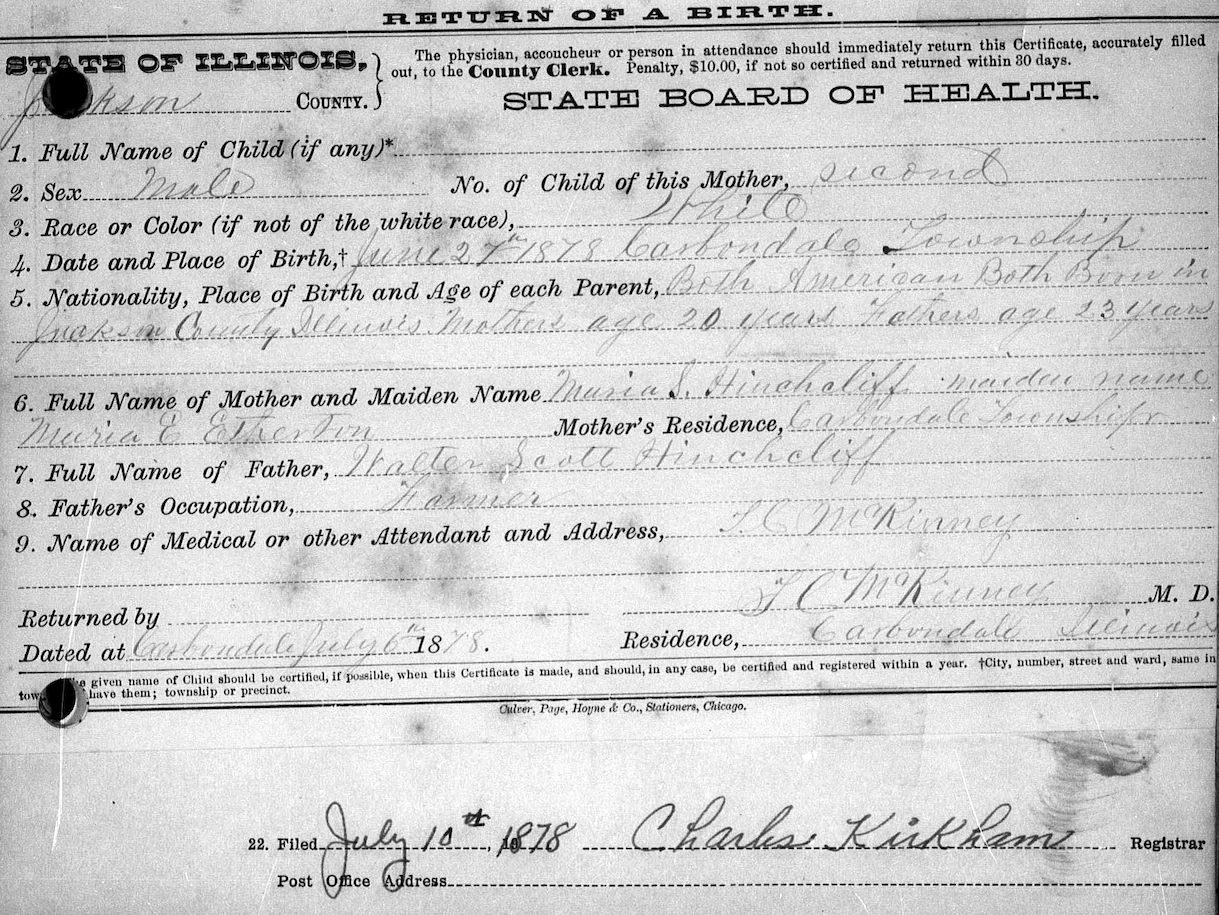 RETURN OF A BIRTH.
STATE OF ILLINOIS,
Jackson COUNTY.
The physician, accoucheur or person in attendance should immediately return this Certificate, accurately filled
out, to the County Clerk. Penalty, $10.00, if not so certified and returned within 30 days.
STATE BOARD OF HEALTH.
1. Full Name of Child (if any)*
2. Sex Male No. of Child of this Mother, second
3. Race or Color (if not of the white race), White
4. Date and Place of Birth,† June 27th 1878 Carbondale Township
5. Nationality, Place of Birth and Age of each Parent, Both American Both Born in
Jackson County Illinois Mothers age 20 years Fathers age 23 years
6. Full Name of Mother and Maiden Name Maria S. Hinchcliff maiden name
Maria E Etherton Mother's Residence, Carbondale Township
7. Full Name of Father, Walter Scott Hinchcliff
8. Father's Occupation, Farmer
9. Name of Medical or other Attendant and Address, McKinney
Returned by McKinney M. D.
Dated at Carbondale July 6th 1878. Residence, Carbondale Illinois
given name of Child should be certified, if possible, when this Certificate is made, and should, in any case, be certified and registered within a year. †City, number, street and ward, same in
have them; township or precinct.
Culver, Page, Hoyne & Co., Stationers, Chicago.
22. Filed July 10th, 1878 Charles Kirkham Registrar
Post Office Address